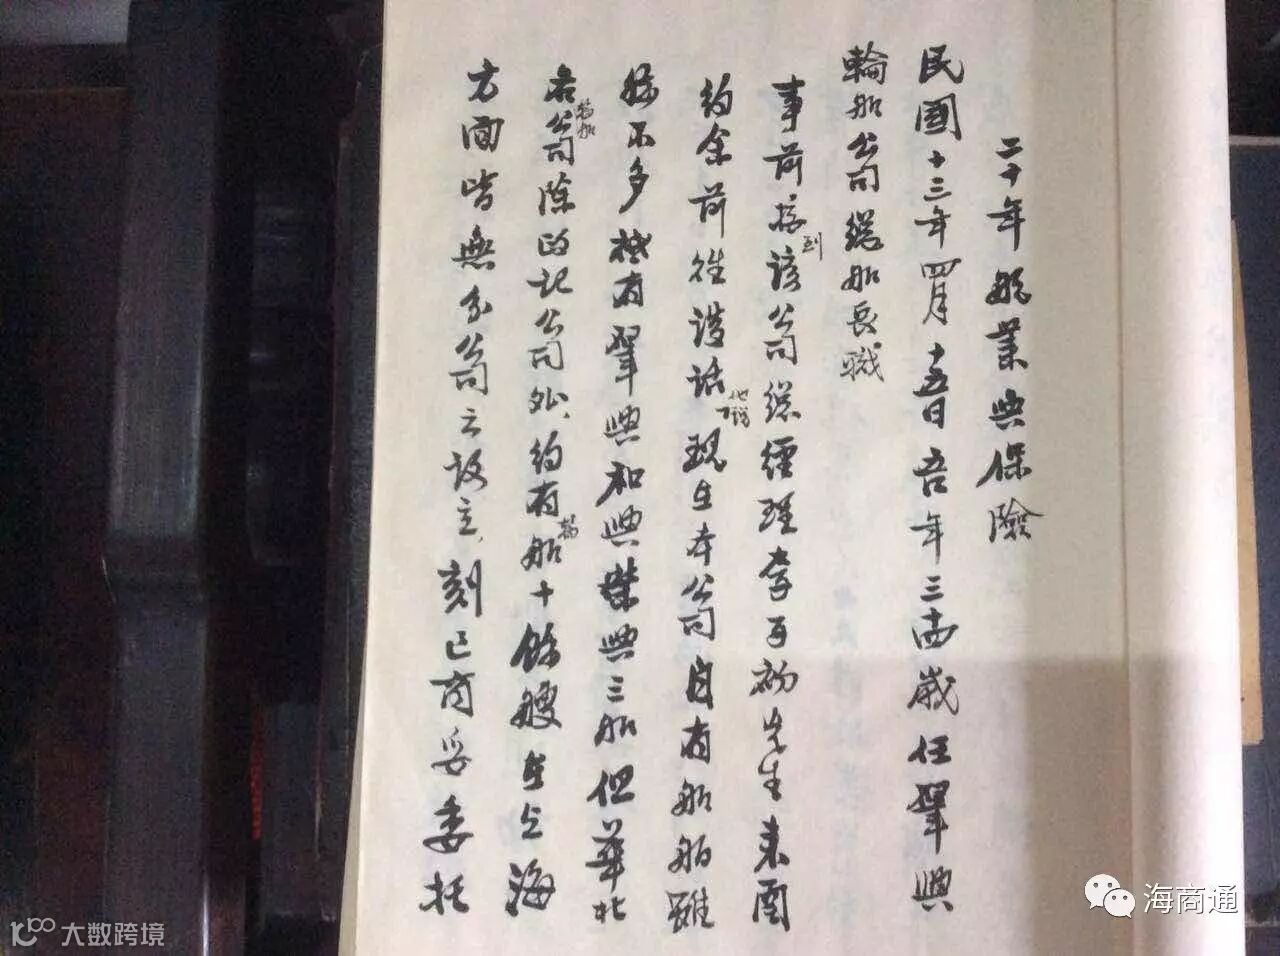 二十年航業與保險
民國十三年四月十五日吾年三十四歲任肇興
輪船公司總船長職
事前接到該公司總經理李子初先生來函
約余前往談話他說現在本公司自有船舶雖
然不多祗有肇興和興榮興三船但華北
各輪船公司除政記公司外、約有輪船十餘艘在上海
方面皆無分公司之設立、刻已商妥委托
海商通
大数跨境